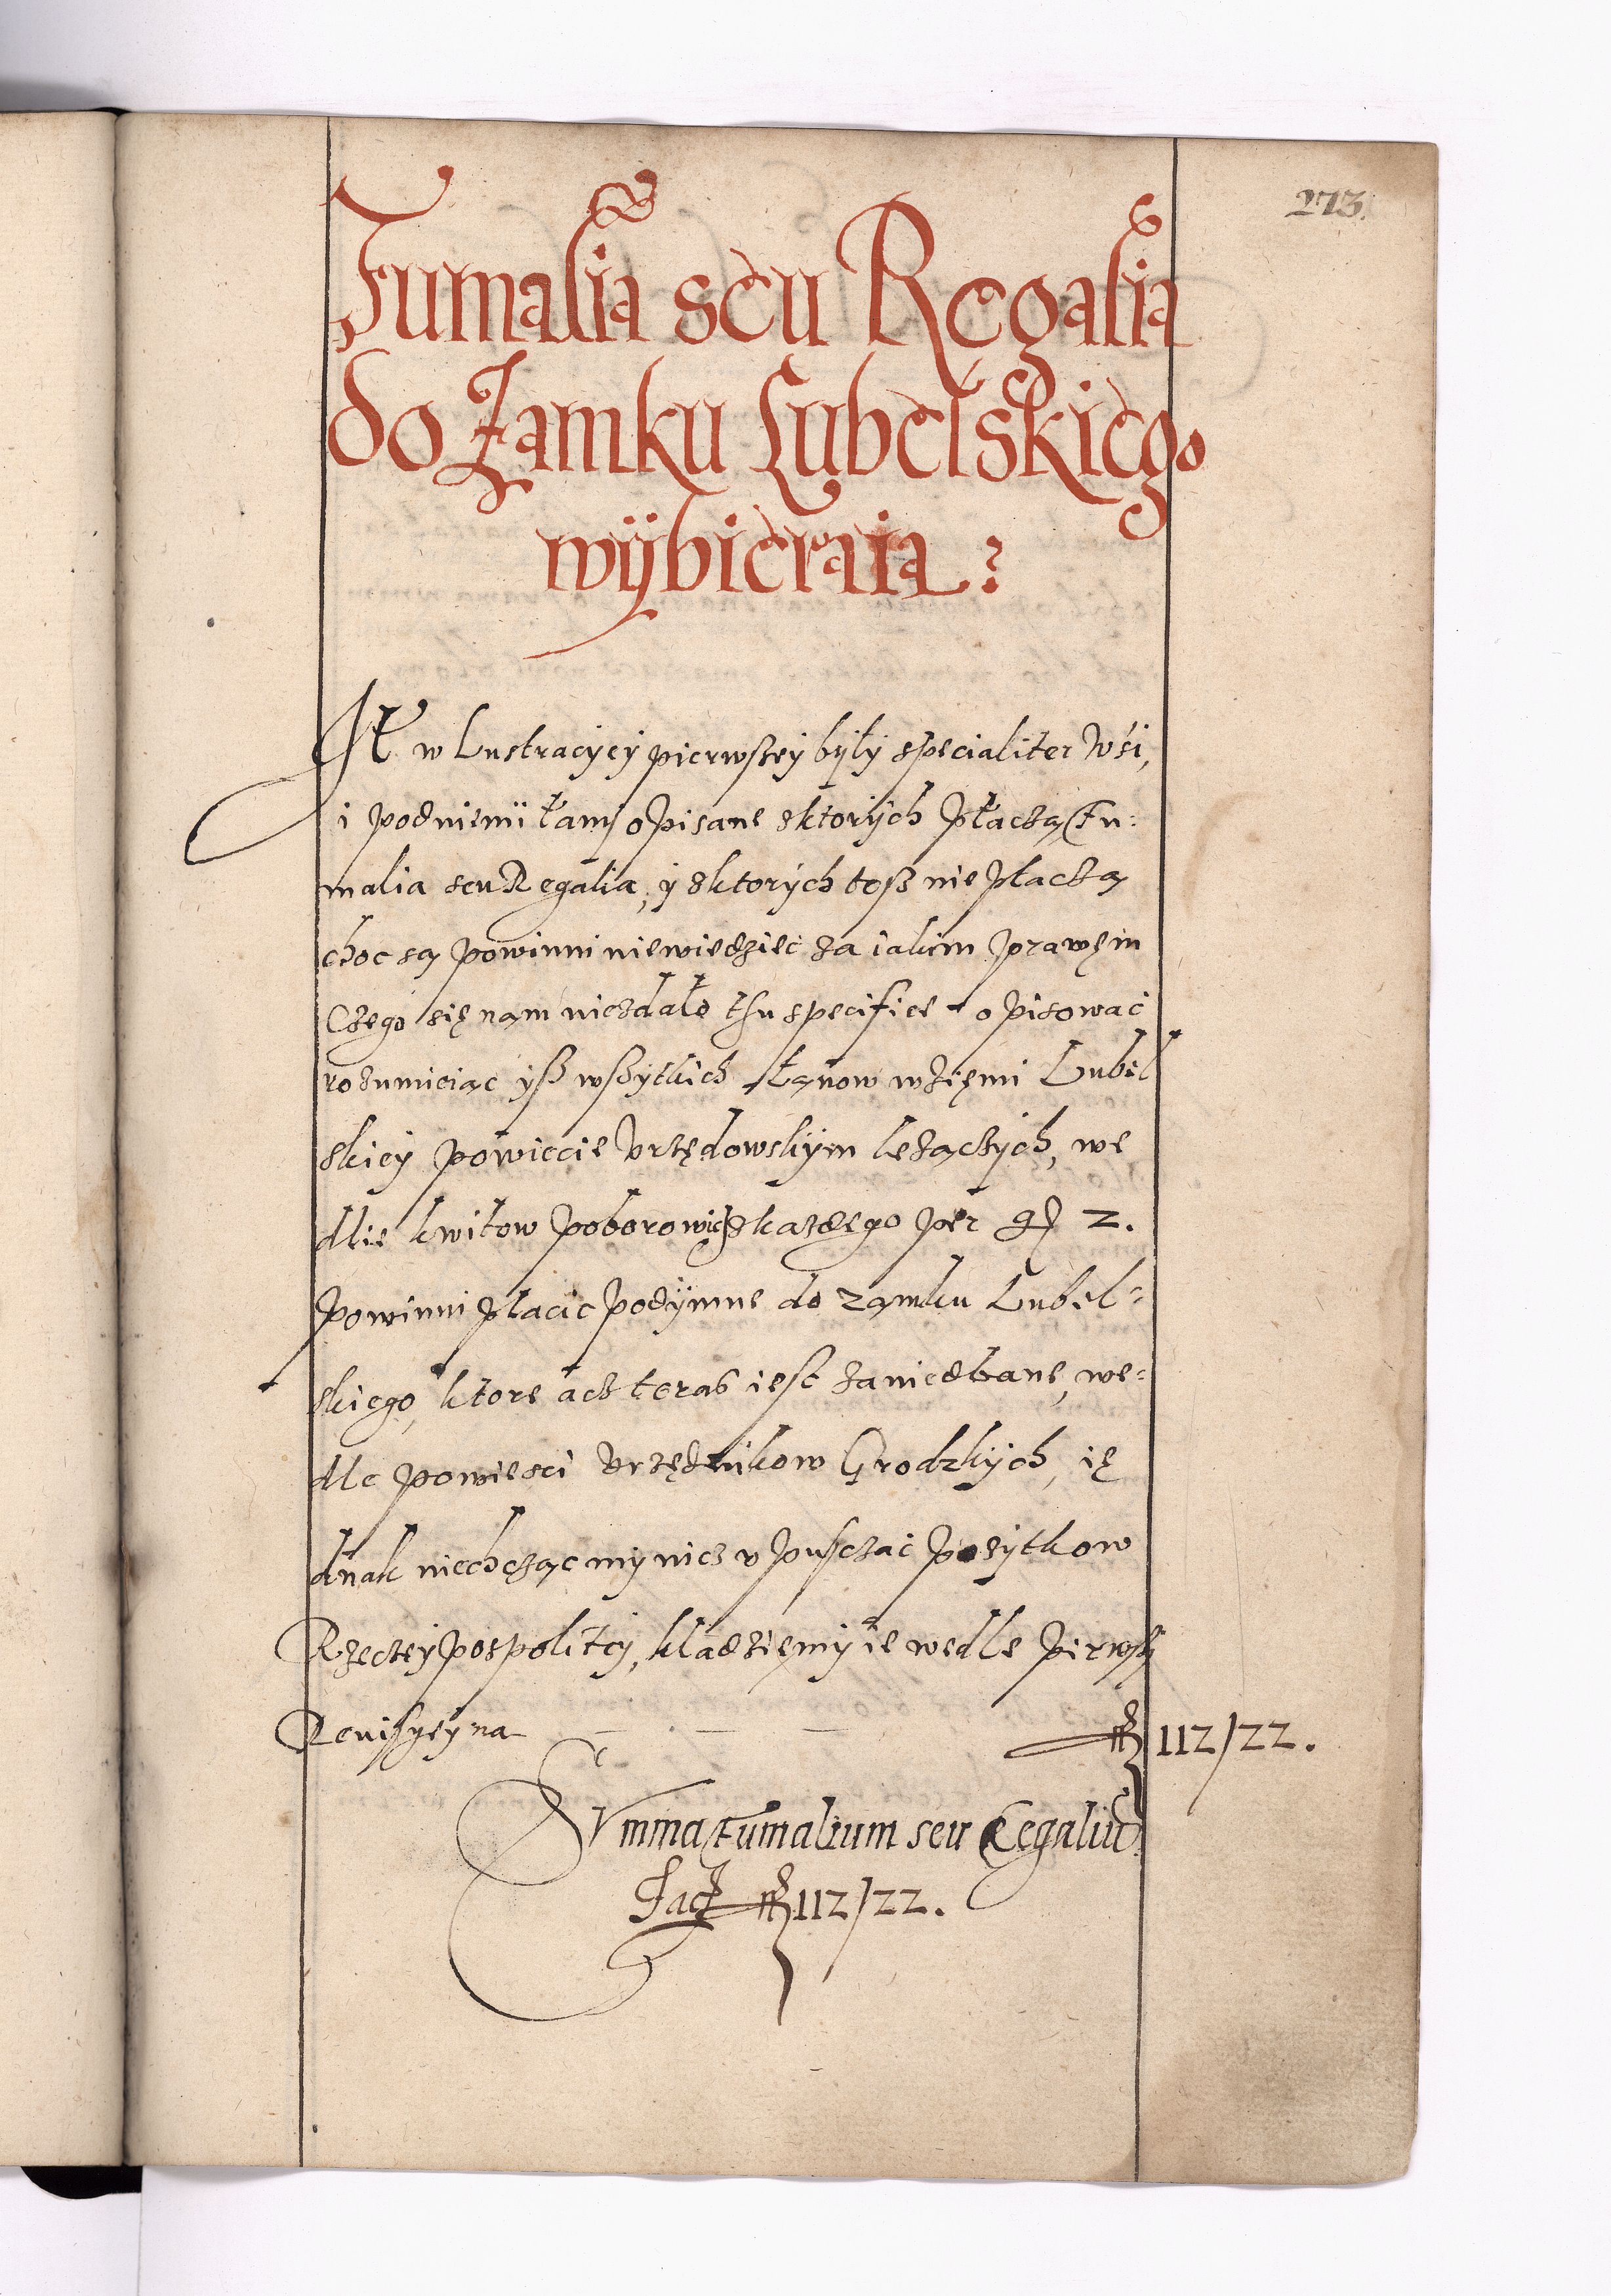 273.
Fumalia seu Regalia
do Zamku Lubelskiego
wÿbieraia.
w Lustracÿcÿ pierwszeÿ bÿłÿ specialiter wsi,
i podniemi łamÿ opisane zktorÿch płaczą Fu-
malia seu Regalia, ÿ zktorÿch tesz nie płaczą
choc są powinni niewiedziec za iakim prawem
Czego się nam niezdało thu specifice opisowac
rozumieiąc ÿsz wszÿtkich łanow wziemi Lubel
skieÿ powiecie Vrzędowskÿm leżączÿch, we
dlie kwitow poborowich zkazdego per gr 2.
powinni płacic podÿmne do zamku Lubel-
skiego, ktore acz teras iest zaniedbane, we-
dle powiesci vrzędnikow Grodzkÿch, ie
dnak niechcząc mÿ nicz vpusczac pożÿtkow
Rzeczeÿ pospoliteÿ, kładziemÿ ie wedle pierwszÿ
Reuisÿeÿ na fl 112/22.
Summa fumalium seu Regaliū
Facit fl 112/22.